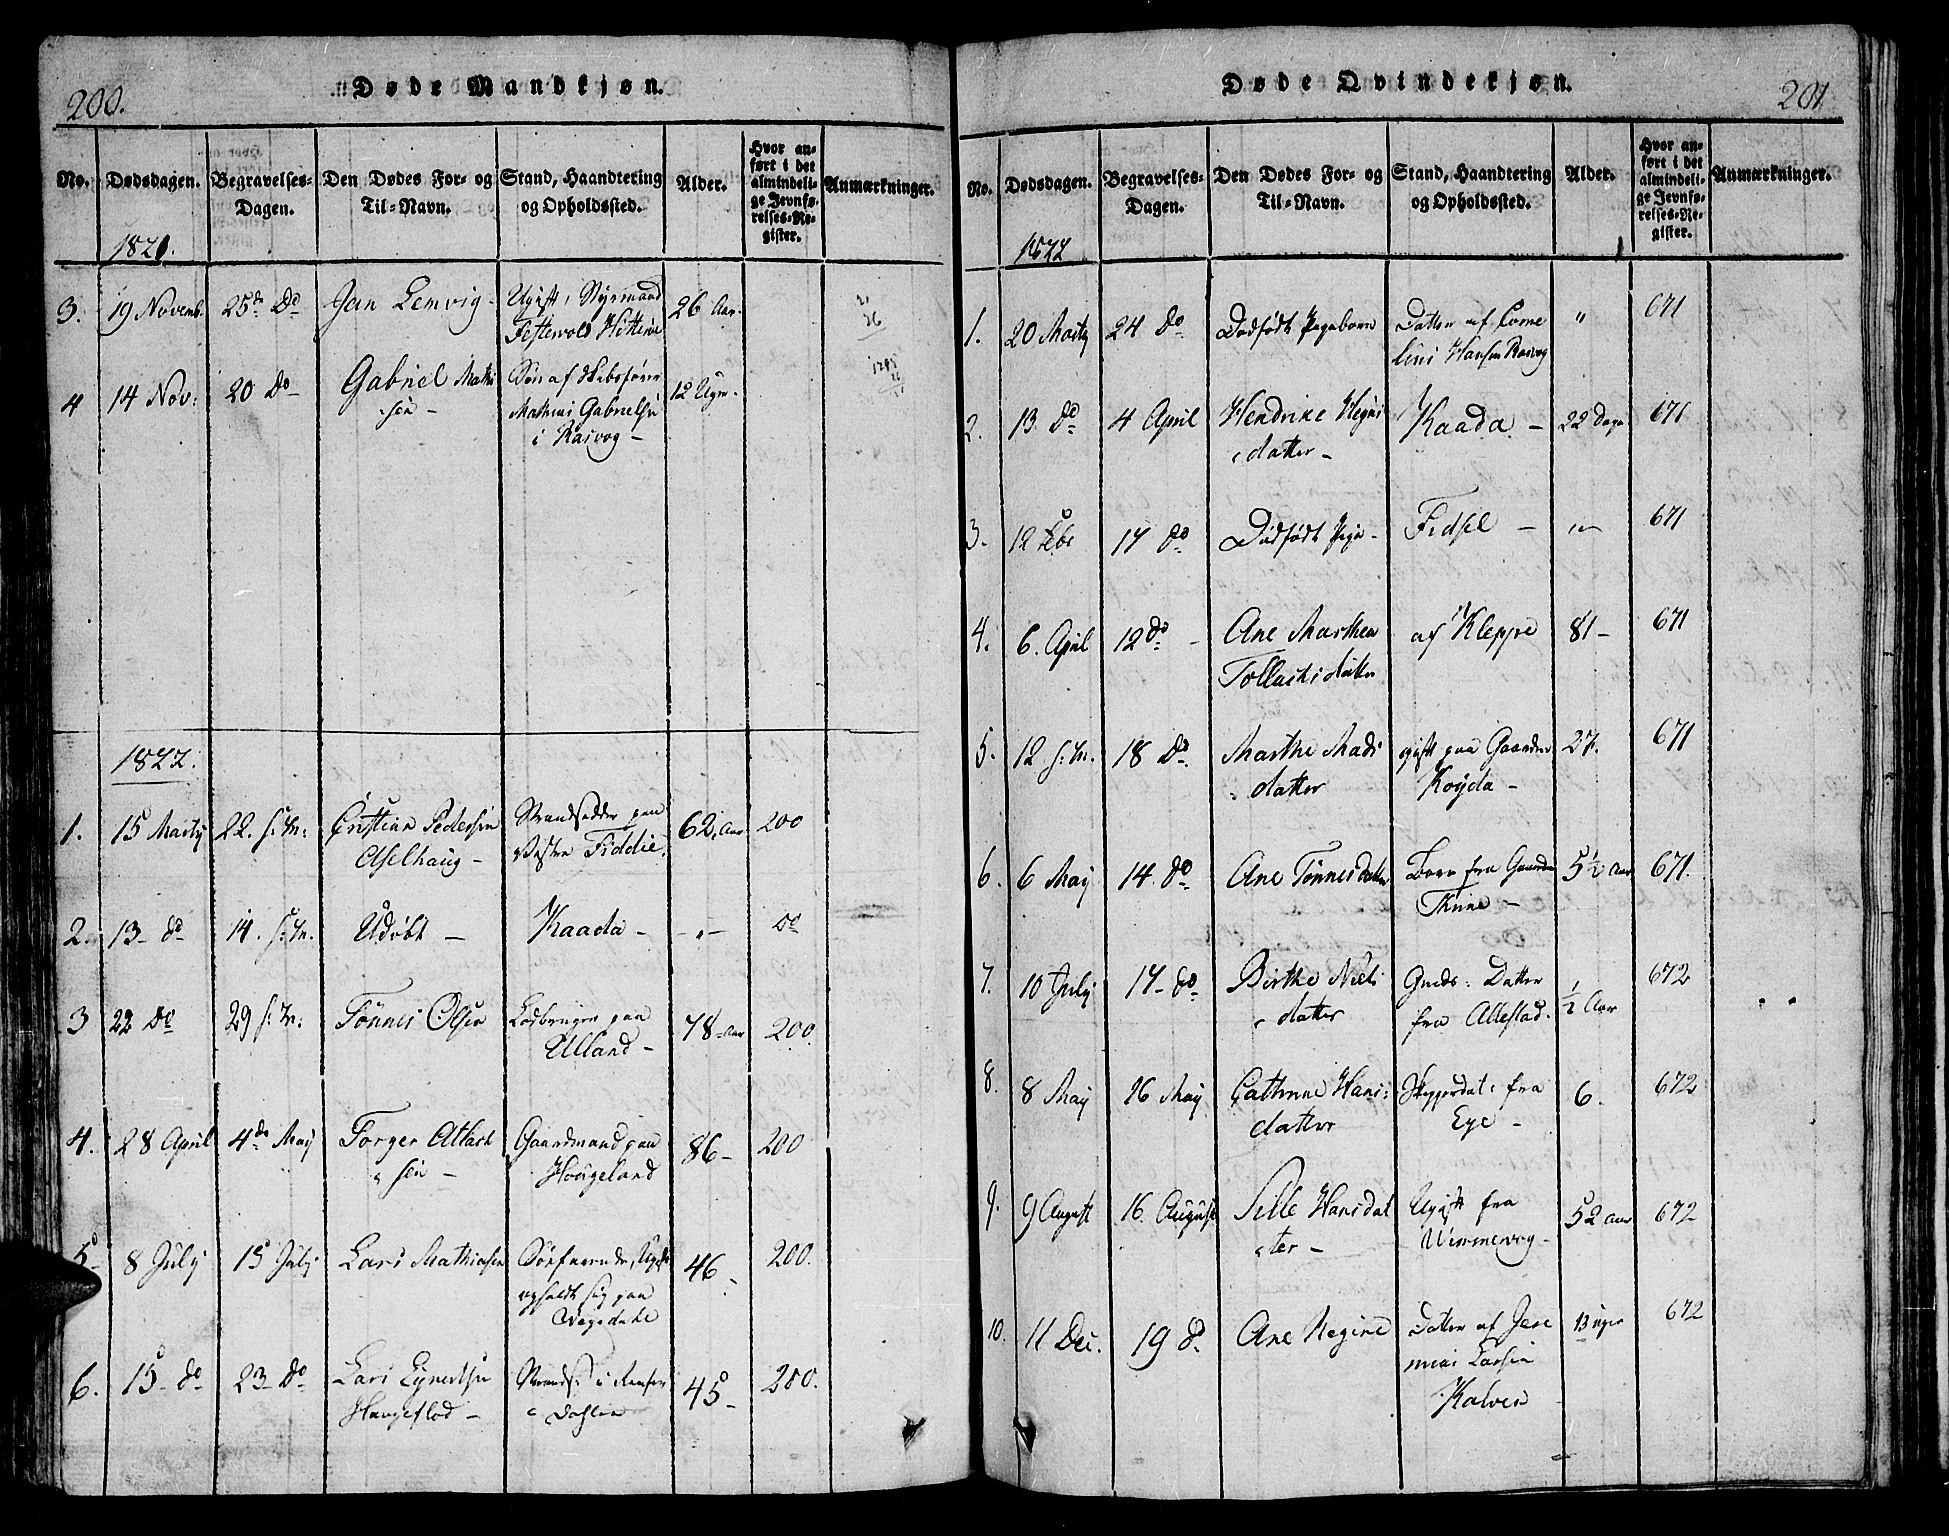 200.
Døde Mandkjøn.
No. Dødsdagen. Begravelses-Dagen. Den Dødes For- og Til-Navn. Stand, Haandtering og Opholdssted. Alder. Hvor anført i det almindelige Jevnførelses-Register. Anmærkninger.
1821.
3. 19 Novemb. 25de Do Jan Lemvig - Ugift, Styrmand 26 Aar.
4 14 Nov: 20 Do Gabriel Mathi Søn af Skibsfører 12 Uger.
sen - Mathias Gabrielsen
i Rasvog -
1822.
1. 15 Martij 22. s: M: Cristian Pedersen Strandsidder paa 62, Aar 200
Aselhaug - Vestre Fiddie.
2. 13 - do 14. s: M. Udøbt - Kaada - - " - do
3 22 do 29 s: M: Tønnes Olsen Lodbruger paa 78 - Aar 200
Ulland -
4. 28 April 4de Maij Torger Atlack Gaardmand paa 86 - 200
sen - Hougeland
5 8 Julij 15 Julij Lars Mathiasen Søefarende, Ugift 46 - 200.
opholdt sig paa
6. 15 - do 23 - Do Lars Ejnertsen 45 - 200.
201
Døde Qvindekjøn.
No. Dødsdagen. Begravelses-Dagen. Den Dødes For- og Til-Navn. Stand, Haandtering og Opholdssted. Alder. Hvor anført i det almindelige Jevnførelses-Register. Anmærkninger.
1822
1. 20 Martij 24 do Dødfødt Pigebarn Datter af Corne " 671
lius Hansen Rasvog
2. 13 Do 4 April Hendrike Kaada - 22 Dage 671
datter -
3. 12 Feb 17 do Dødfødt Pige - Fidsel - 671
4. 6. April 12 do - Ane Marthea af Kleppe 81 - 671
Tollachsdatter
5. 12 s: M. 18 Do Marthe Mads gift paa Gaarden 27. 671
datter Køyda -
6. 6 Maij 14. do Ane Tønnesdatter Barn fra Gaarden 5½ Aar 671.
7. 10 Julij 17 - do Birthe Niels Gmds: Datter ½ Aar 672
datter fra Allestad.
8. 8 Maij 16 Maij Cathrine Hans: fra 6. 672
datter Eye -
9. 9 August 16 August Sille Hansdat Ugift fra 52 Aar 672
ter -
10. 11 Dec. 19 do Ane Regine Datter af Jere 13 Uger 672
mias Larsen
Kalven